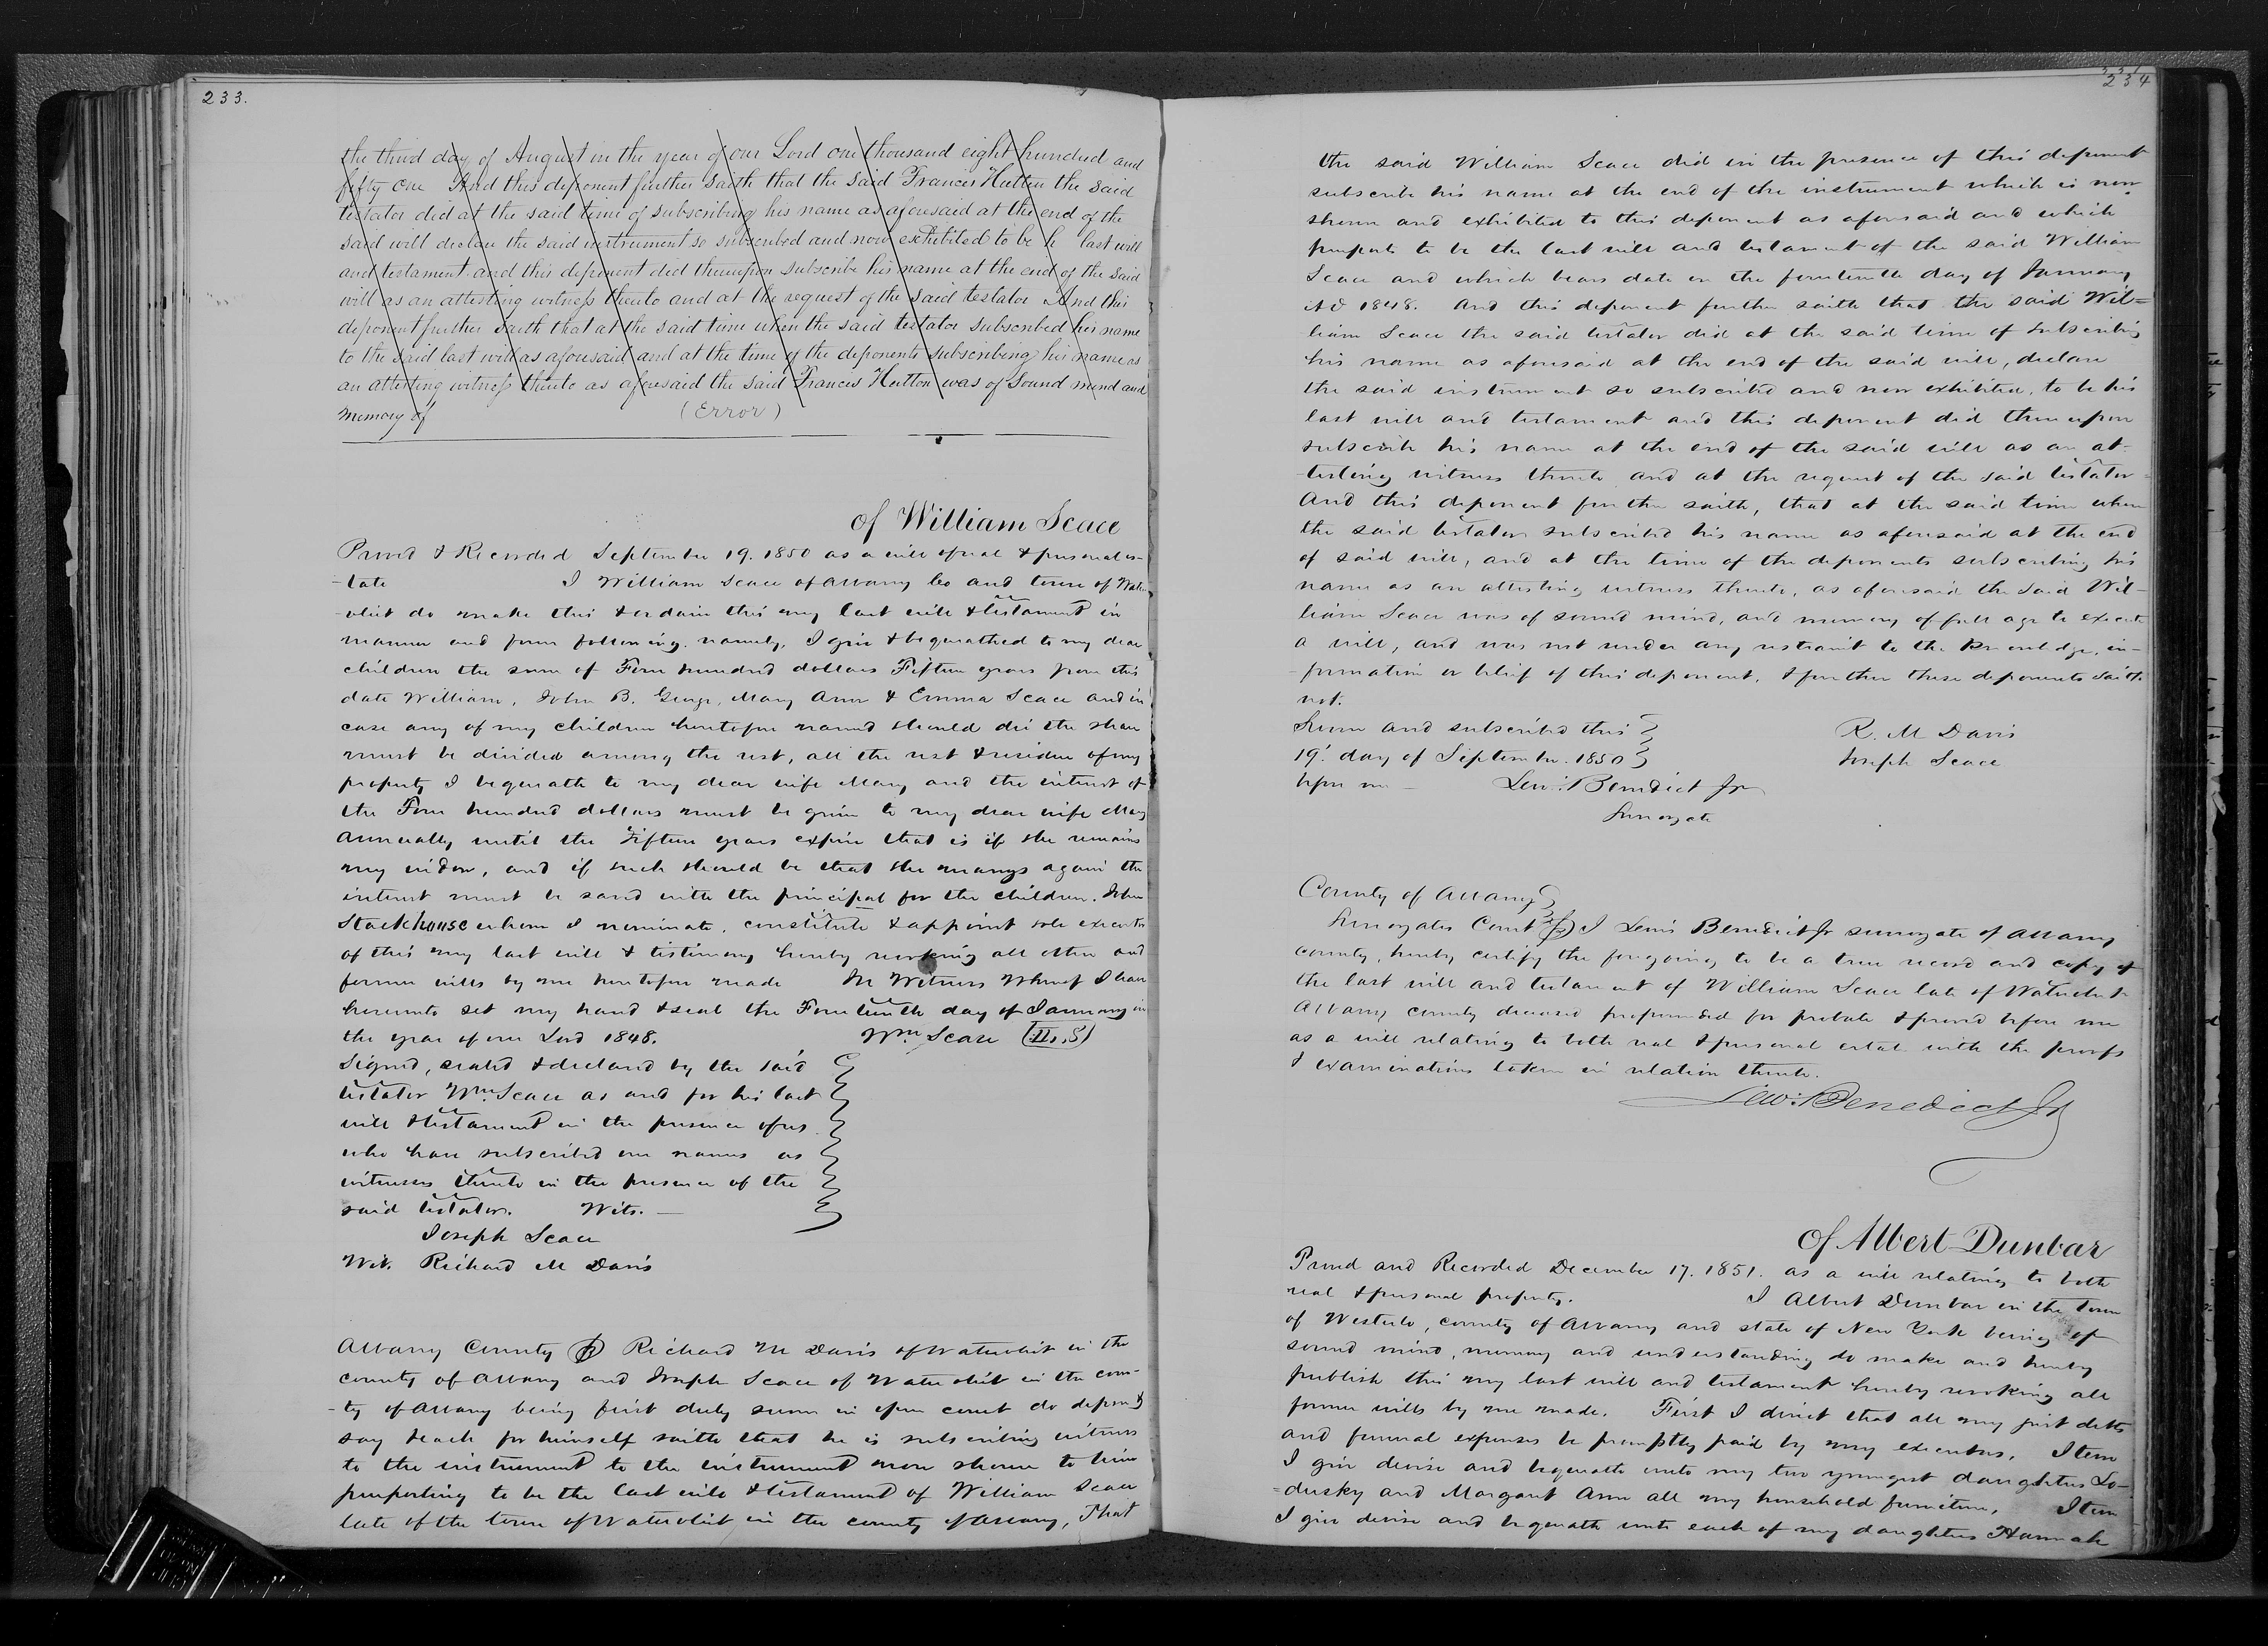 233.
the third day of August in the year of our Lord one thousand eight hundred and
fifty one And this deponent further saith that the said Francis Hutton the said
testator did at the said time of subscribing his name as aforesaid at the end of the
said will declare the said instrument so subscribed and now exhibited to be h last will
and testament and this deponent did thereupon subscribe his name at the end of the said
will as an attesting witness thereto and at the request of the said testator And this
deponent further saith that at the said time when the said testator subscribed his name
to the said last will as aforesaid and at the time of the deponents subscribing his name as
an attesting witness thereto as aforesaid the said Francis Hutton was of Sound mind and
memory of (Error)
of William Scace
Proved & Recorded September 19. 1850 as a will of real & personal es-
-tate I William Scace of Albany Co and town of Water
vliet do make this & ordain this my last will & testament in
manner and form following. namely, I give & bequeathed to my dear
children the sum of Four hundred dollars Fifteen years from this
date William, John B. George, Mary Ann & Emma Scace and in
case any of my children heretofore named should die the share
must be divided among the rest, all the rest & residue of my
property I bequeath to my dear wife Mary and the interest of
the Four hundred dollars must be given to my dear wife Mary
Annually until the Fifteen years expire that is if she remains
my widow, and if such should be that she marrys again the
interest must be saved with the principal for the children. John
Stackhouse whom I nominate, constitute & appoint sole executor
of this my last will & testimony hereby revoking all other and
former wills by me heretofore made In Witness Whereof I have
hereunto set my hand & seal the Fourteenth day of January in
the year of our Lord 1848. Wm Scace (L.S)
Signed, sealed & declared by the said
testator Wm. Scace as and for his last
will & testament in the presence of us
who have subscribed our names as
witnesses thereto in the presence of the
said testator. Wits. —
Joseph Scace
Wit. Richard M Davis
Albany County SS Richard M Davis of Watervliet in the
county of Albany and Joseph Scace of Watervliet in the coun-
-ty of Albany being first duly sworn in open court do depose &
say & each for himself saith that he is subscribing witness
to the instrument to the instrument now shown to him
purporting to be the last will & testament of William Scace
late of the town of Watervliet in the county of Albany, That
234
the said William Scace did in the presence of this deponent
subscribe his name at the end of the instrument which is now
shown and exhibited to this deponent as aforesaid and which
purports to be the last will and testament of the said William
Scace and which bears date on the fourteenth day of January
AD 1848. And this deponent further saith that the said Wil=
liam Scace the said testator did at the said time of subscribing
his name as aforesaid at the end of the said will, declare
the said instrument so subscribed and now exhibited, to be his
last will and testament and this deponent did thereupon
subscribe his name at the end of the said will as an at-
-testing witness thereto and at the request of the said testator
And this deponent further saith, that at the said time when
the said testator subscribed his name as aforesaid at the end
of said will, and at the time of the deponents subscribing his
name as an attesting witness thereto, as aforesaid the said Wil-
liam Scace was of sound mind, and memory of full age to execute
a will, and was not under any restraint to the knowledge, in-
-formation or belief of this deponent, & further these deponents saith
not.
Sworn and subscribed this R. M Davis
19' day of September. 1850 Joseph Scace
before me — Lew: Benedict Jr
Surrogate
County of Albany
Surrogates Court SS I Lewis Benedict Jr surrogate of Albany
county, hereby certify the foregoing to be a true record and copy of
the last will and testament of William Scace late of Watervliet
Albany county deceased propounded for probate & proved before me
as a will relating to both real & personal estate with the proofs
& examinations taken in relation thereto.
Lew: Benedict Jr
Of Albert Dunbar
Proved and Recorded December 17. 1851. as a will relating to both
real & personal property. I Albert Dunbar in the town
of Westerlo, county of Albany and state of New York being of
sound mind, memory and understanding do make and hereby
publish this my last will and testament hereby revoking all
former wills by me made. First I direct that all my just debts
and funeral expenses be promptly paid by my executors, Item
I give devise and bequeath unto my two youngest daughters Lo-
=dusky and Margaret Ann all my household furniture, Item
I give devise and bequeath unto each of my daughters Hannah